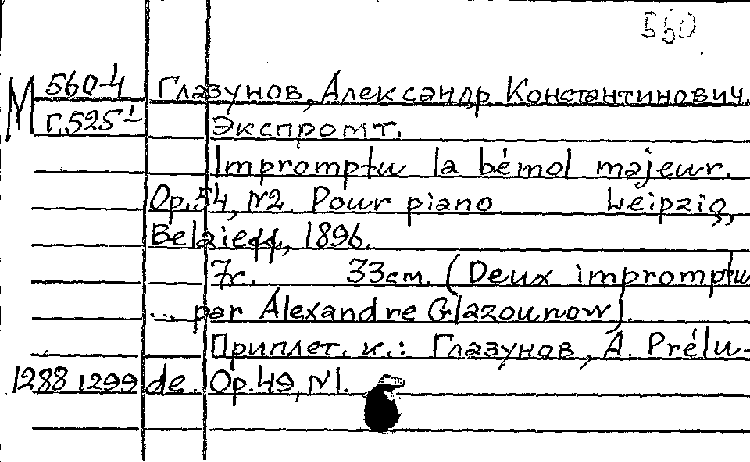 560
М 560-4 Глазунов, Александр Константинович.
Г.525 Экспромт.
Impromptu la bémol majeur.
Op.54, N2. Pour piano Leipzig,
Belaieff, 1896.
7с. 33см. (Deux impromptu
... par Alexandre Glazounow).
Приплет. к.: Глазунов, А. Prélu-
1288 1299 de. Op.49, N1.